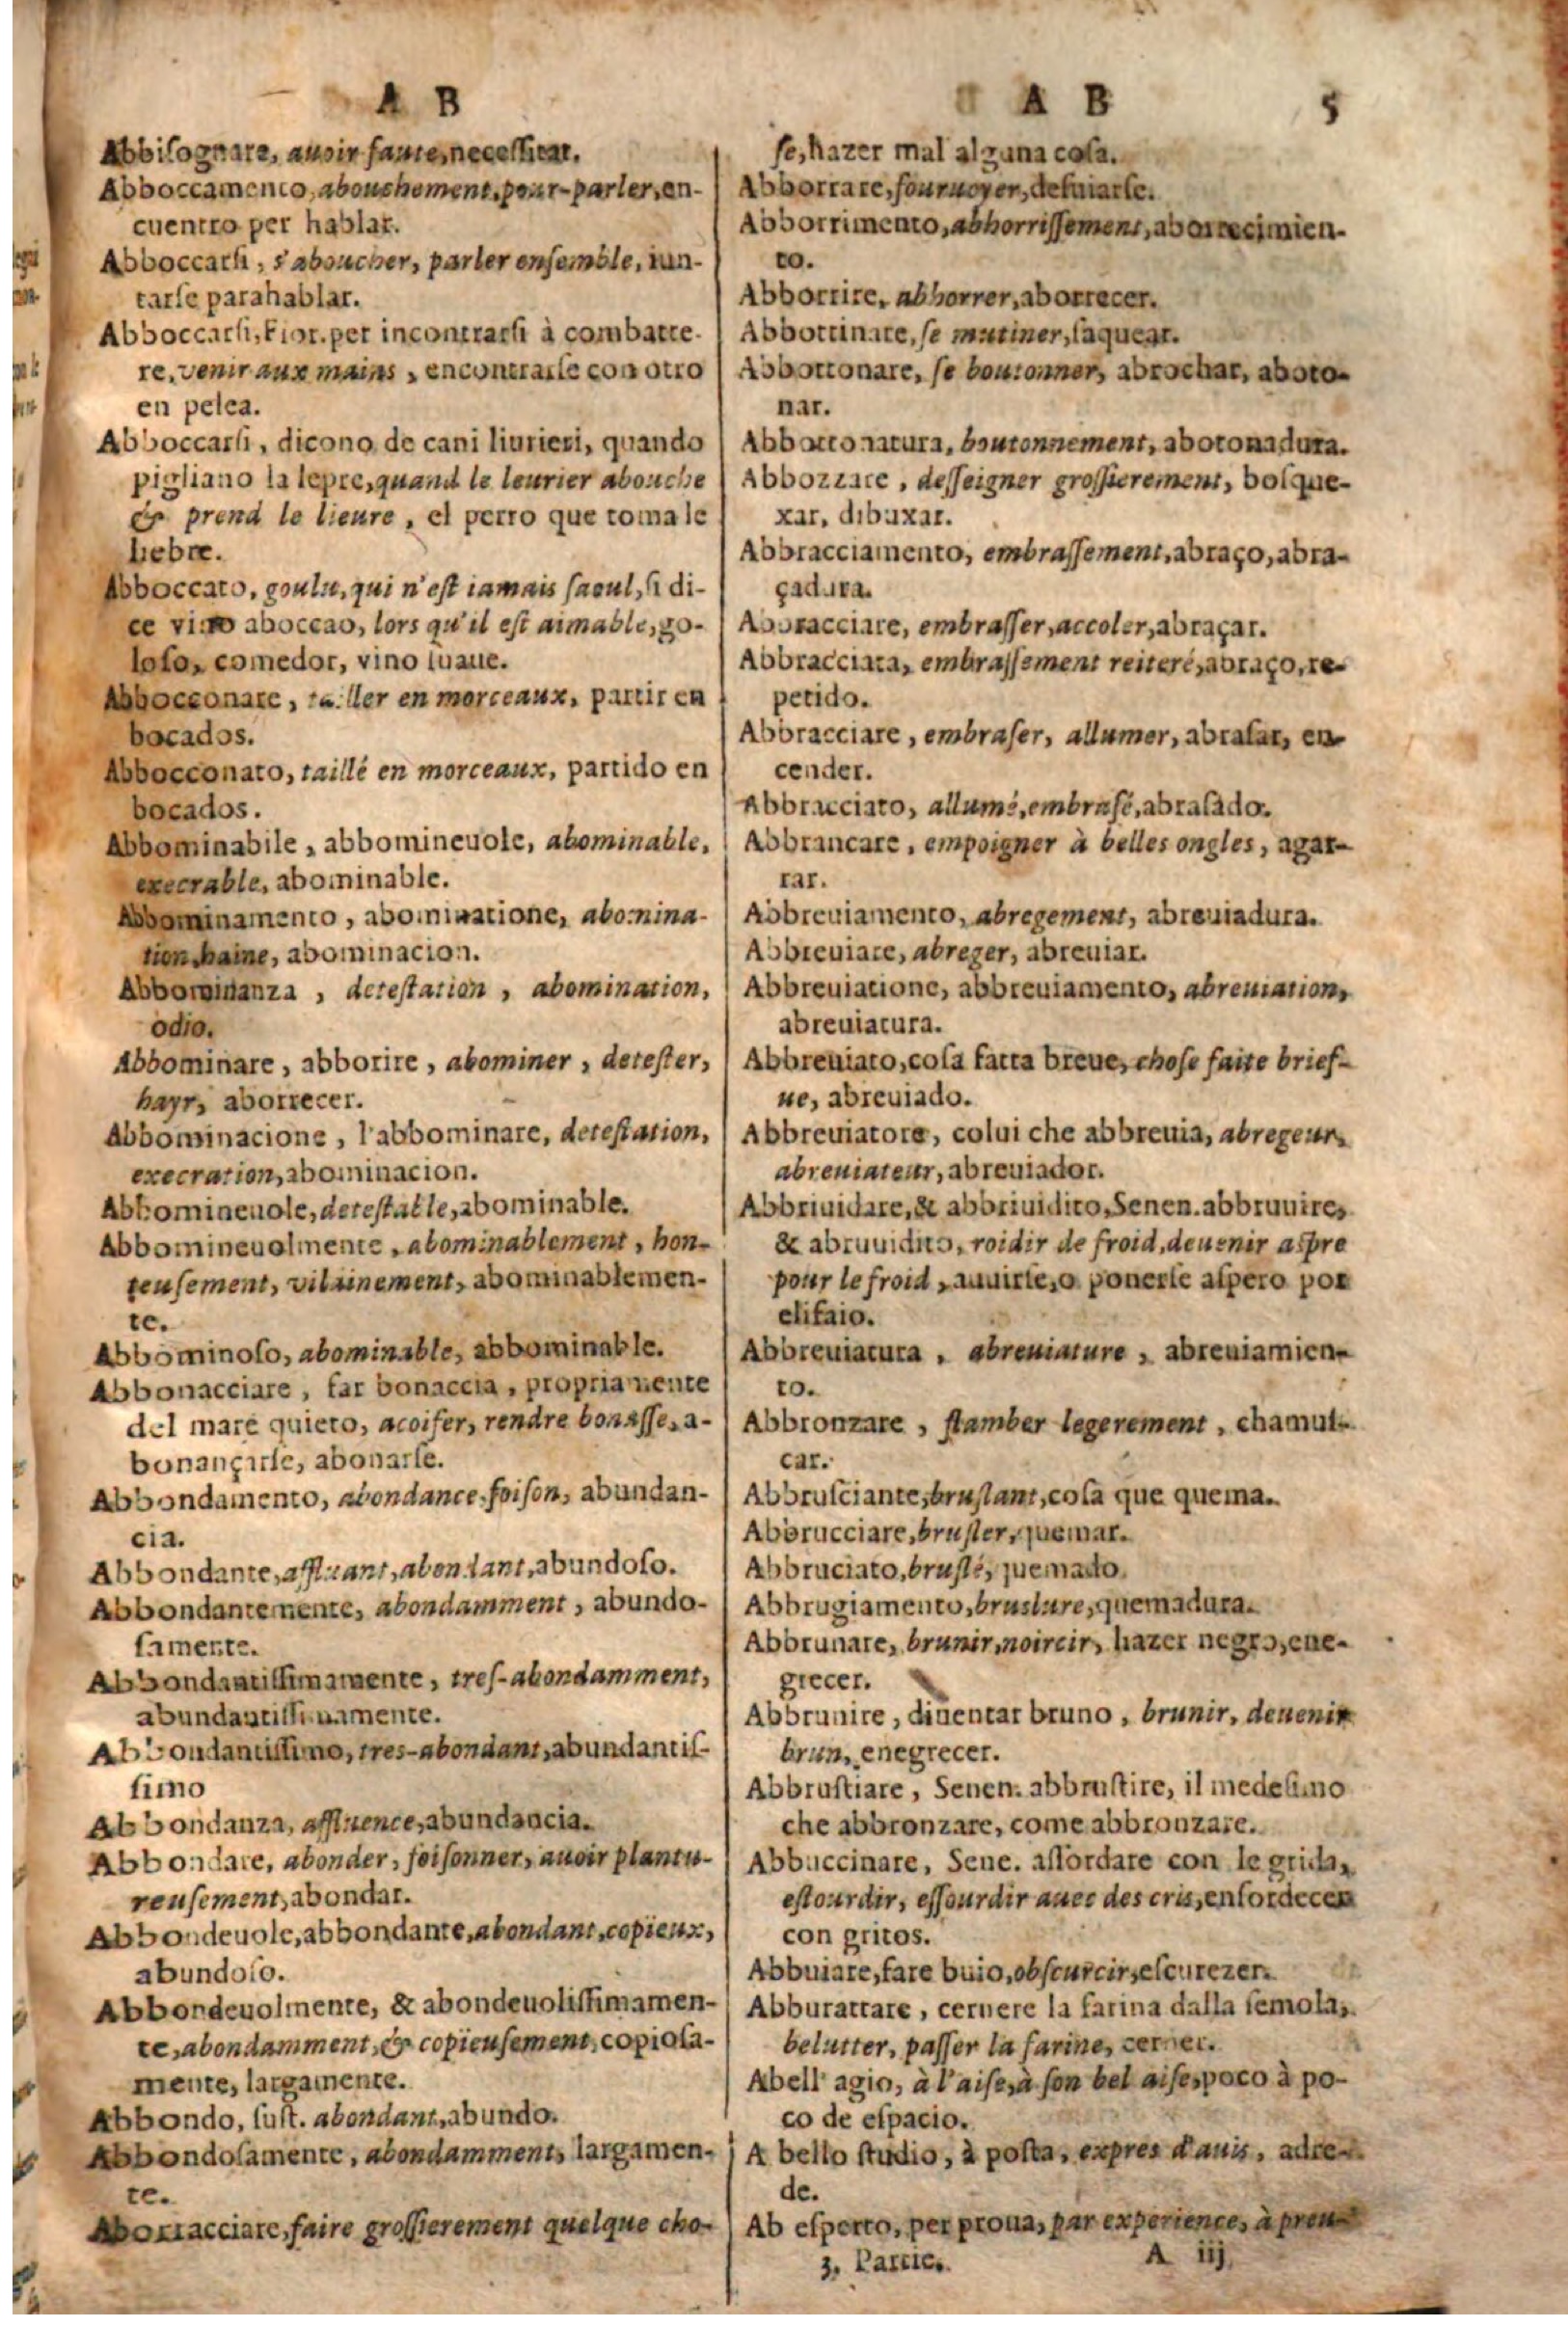 A B
Abbisognare, auoir faute, necessitar.
Abboccamento, abouchement, pour-parler, en-
cuentro per hablar.
Abboccarsi, s'aboucher, parler ensemble, iun-
tarse parahablar.
Abboccarsi, Fior. per incontrarsi à combatte-
re, venir aux mains, encontrarse con otro
en pelea.
Abboccarsi, dicono de cani liurieri, quando
pigliano la lepre, quand le leurier abouche
& prend le lieure, el perro que toma le
liebre.
Abboccato, goulu, qui n'est iamais saoul, si di-
ce vino aboccao, lors qu'il est aimable, go-
loso, comedor, vino suaue.
Abbocconare, tailler en morceaux, partir en
bocados.
Abbocconato, taillé en morceaux, partido en
bocados.
Abbominabile, abbomineuole, abominable,
execrable, abominable.
Abbominamento, abominatione, abomina-
tion, haine, abominacion.
Abbominanza, detestation, abomination,
odio.
Abbominare, abborire, abominer, detester,
hayr, aborrecer.
Abbominacione, l'abbominare, detestation,
execration, abominacion.
Abbomineuole, detestable, abominable.
Abbomineuolmente, abominablement, hon-
teusement, vilainement, abominablemen-
te.
Abbominoso, abominable, abbominable.
Abbonacciare, far bonaccia, propriamente
del mare quieto, acoiser, rendre bonasse, a-
bonançirse, abonarse.
Abbondamento, abondance, foison, abundan-
cia.
Abbondante, affluant, abondant, abundoso.
Abbondantemente, abondamment, abundo-
samente.
Abbondantissimamente, tres-abondamment,
abundantissimamente.
Abbondantissimo, tres-abondant, abundantis-
simo
Abbondanza, affluence, abundancia.
Abbondare, abonder, foisonner, auoir plantu-
reusement, abondar.
Abbondeuole, abbondante, abondant, copieux,
abundoso.
Abbondeuolmente, & abondeuolissimamen-
te, abondamment, & copieusement, copiosa-
mente, largamente.
Abbondo, sust. abondant, abundo.
Abbondosamente, abondamment, largamen-
te.
Aborracciare, faire grossierement quelque cho-
A B 5
se, hazer mal alguna cosa.
Abborrare, fouruoyer, desuiarse.
Abborrimento, abhorrissement, aborrecimien-
to.
Abborrire, abhorrer, aborrecer.
Abbottinare, se mutiner, saquear.
Abbottonare, se boutonner, abrochar, aboto-
nar.
Abbottonatura, boutonnement, abotonadura.
Abbozzare, desseigner grossierement, bosque-
xar, dibuxar.
Abbracciamento, embrassement, abraço, abra-
çadura.
Abbracciare, embrasser, accoler, abraçar.
Abbracciata, embrassement reiteré, abraço, re-
petido.
Abbracciare, embraser, allumer, abrasar, en-
cender.
Abbracciato, allumé, embrasé, abrasado.
Abbrancare, empoigner à belles ongles, agar-
rar.
Abbreuiamento, abregement, abreuiadura.
Abbreuiare, abreger, abreuiar.
Abbreuiatione, abbreuiamento, abreuiation,
abreuiatura.
Abbreuiato, cosa fatta breue, chose faite brief-
ue, abreuiado.
Abbreuiatore, colui che abbreuia, abregeur,
abreuiateur, abreuiador.
Abbriuidare, & abbriuidito, Senen. abbruuire,
& abruuidito, roidir de froid, deuenir aspre
pour le froid, auuirse, o ponerse aspero por
elifaio.
Abbreuiatura, abreuiature, abreuiamien-
to.
Abbronzare, flamber legerement, chamus-
car.
Abbrusciante, bruslant, cosa que quema.
Abbrucciare, brusler, quemar.
Abbruciato, bruslé, quemado.
Abbrugiamento, bruslure, quemadura.
Abbrunare, brunir, noircir, hazer negro, ene-
grecer.
Abbrunire, diuentar bruno, brunir, deuenir
brun, enegrecer.
Abbrustiare, Senen. abbrustire, il medesimo
che abbronzare, come abbronzare.
Abbuccinare, Sene. assordare con le grida,
estourdir, essourdir auec des cris, ensordecer
con gritos.
Abbuiare, fare buio, obscurcir, escurezer.
Abburattare, cernere la farina dalla semola,
belutter, passer la farine, cerner.
Abell' agio, à l'aise, à son bel aise, poco à po-
co de espacio.
A bello studio, à posta, expres d'auis, adre-
de.
Ab esperto, per proua, par experience, à preu-
3. Partie. A iij